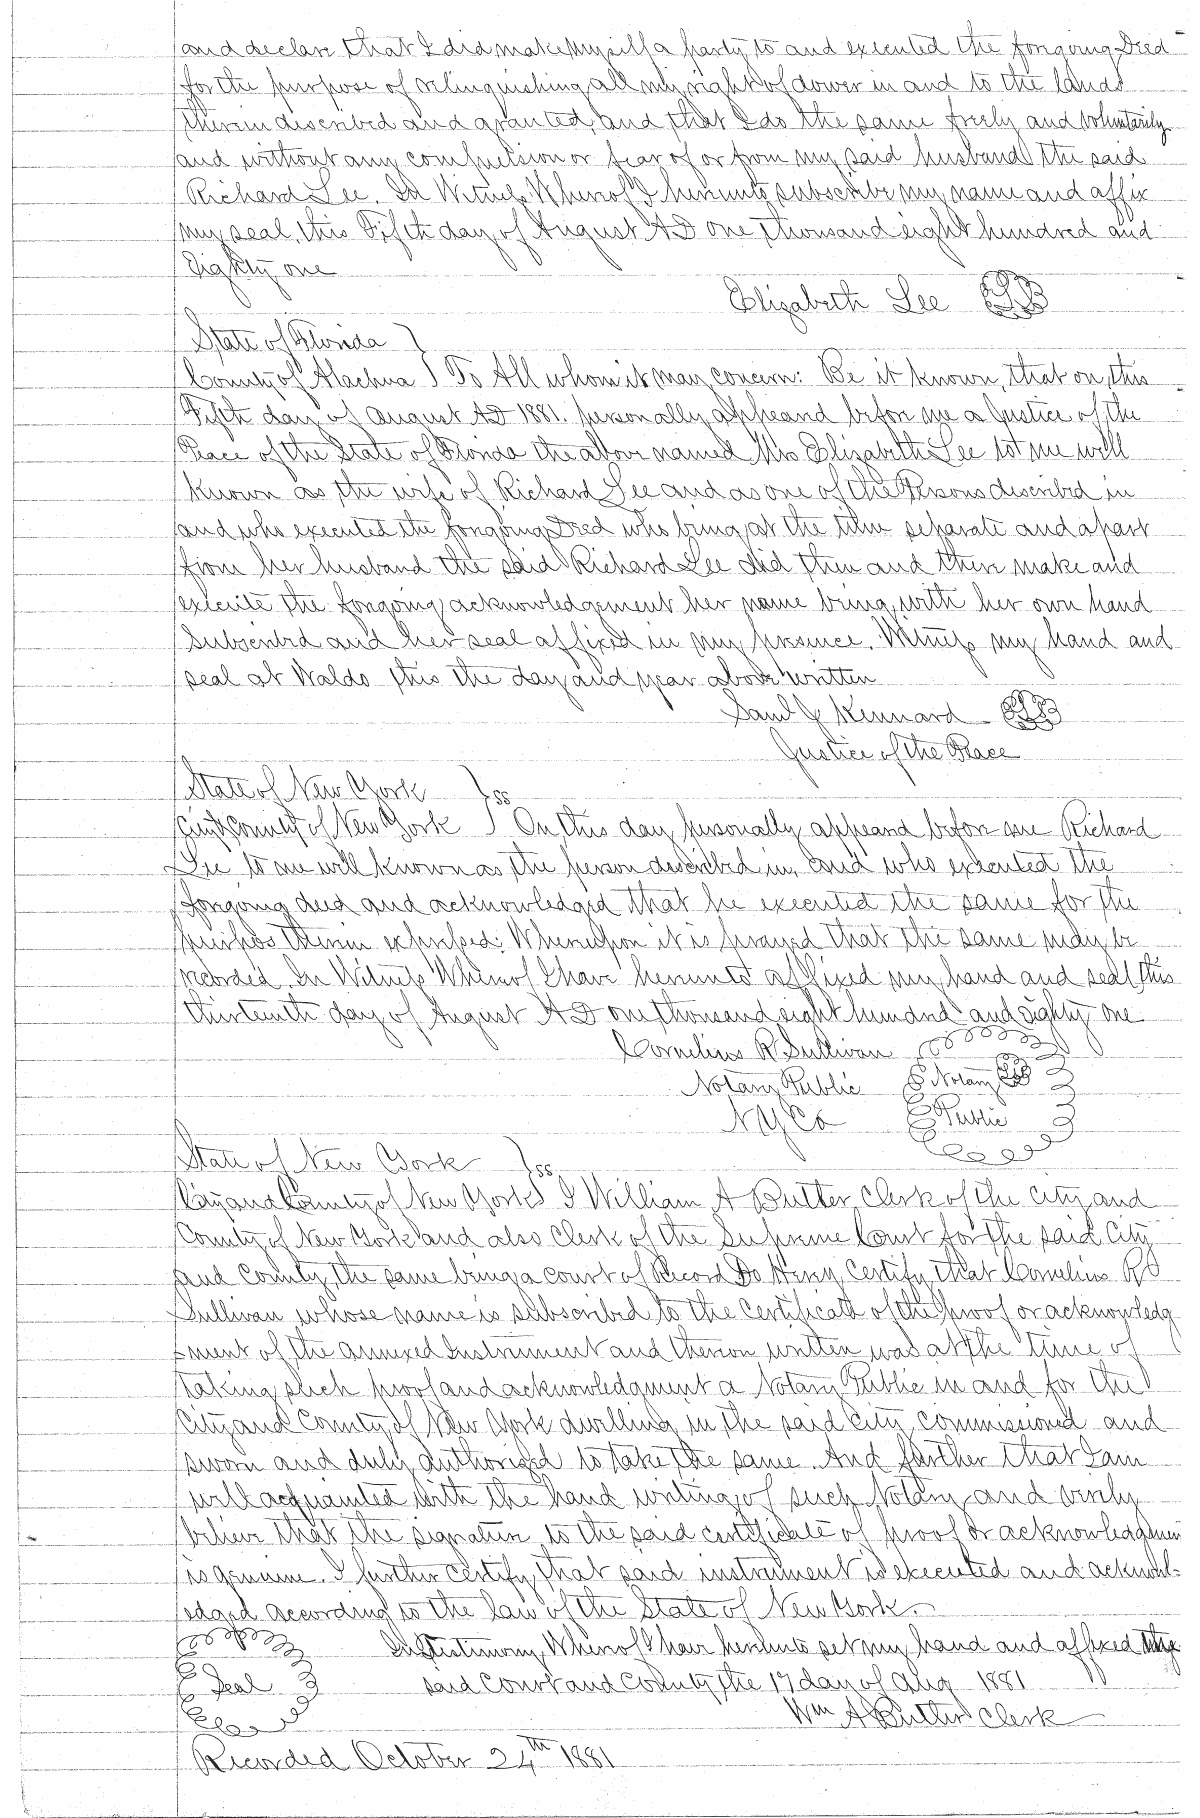 and declare that I did make myself a party to and executed the foregoing Deed
for the purpose of relinquishing all my right of dower in and to the lands
therein described and granted, and that I do the same freely and voluntarily
and without any compulsion or fear of or from my said husband the said
Richard Lee. In Witness Whereof I hereunto subscribe my name and affix
my seal, this Fifth day of August AD one thousand eight hundred and
Eighty one
Elizabeth Lee LS
State of Florida }
County of Alachua } To All whom it may concern: Be it known, that on this
Fifth day of August AD 1881. personally appeared before me a Justice of the
Peace of the State of Florida the above named Mrs Elizabeth Lee tot me well
known as the wife of Richard Lee and as one of the Persons described in
and who executed the foregoing Deed who being at the time separate and apart
from her husband the said Richard Lee did then and there make and
execute the foregoing acknowledgement her name being with her own hand
subscribed and her seal affixed in my presence. Witness my hand and
seal at Waldo this the day and year above written
Saml J Kennard LS
Justice of the Peace
State of New York } ss
City & County of New York } On this day personally appeared before me Richard
Lee to me well known as the person described in, and who executed the
foregoing deed and acknowledged that he executed the same for the
purpos therein expressed; Whereupon it is prayed that the same may be
recorded. In Witness Whereof I have hereunto affixed my hand and seal this
thirteenth day of August AD one thousand eight hundred and Eighty one
Cornelius R Sullivan
Notary Public Notary LS
N Y Co Public
State of New York } ss
City and County of New York } I William A Butler Clerk of the City and
County of New York and also Clerk of the Supreme Court for the said City
and County, the same being a court of Record Do Hereby Certify, that Cornelius R
Sullivan whose name is subscribed to the Certificate of the proof or acknowledg
-ment of the annexed Instrument and thereon written was at the time of
taking such proof and acknowledgment a Notary Public in and for the
City and County of New York dwelling in the said City, commissioned and
sworn and duly authorized to take the same. And further that I am
well acquainted with the hand writing of such Notary and verily
believe that the signature to the said certificate of proof or acknowledgmen
is genuine. I further certify that said instrument is executed and acknowl-
edged according to the law of the State of New York.
In Testimony Whereof I have hereunto set my hand and affixed the
Seal said Court and County, the 17 day of Aug 1881
Wm A Butler Clerk
Recorded October 24th 1881